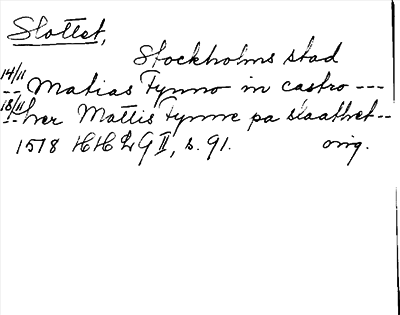 Slottet,
Stockholms stad
14/11 -- Matias Fynno in castro ---
18/11 -- her Mattis Fynne pa slaathet --
1578 HH2G II, s. 91. orig.